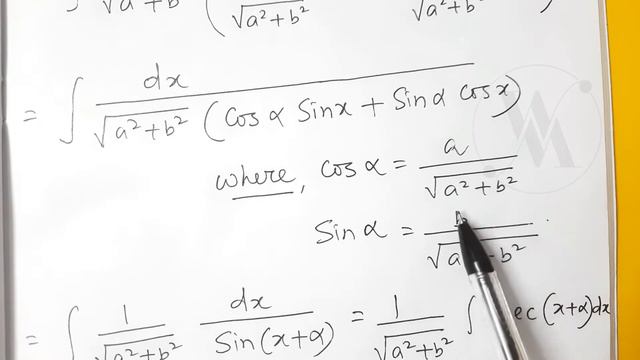 ∫ √a²+b² ( √a²+b² √a²+b² )
= ∫ dx / √a²+b² (Cos α Sin x + Sin α Cos x)
where, Cos α = a / √a²+b²
Sin α = b / √a²+b²
= ∫ 1/√a²+b² dx / Sin(x+α) = 1/√a²+b² ∫ ec(x+α)dx